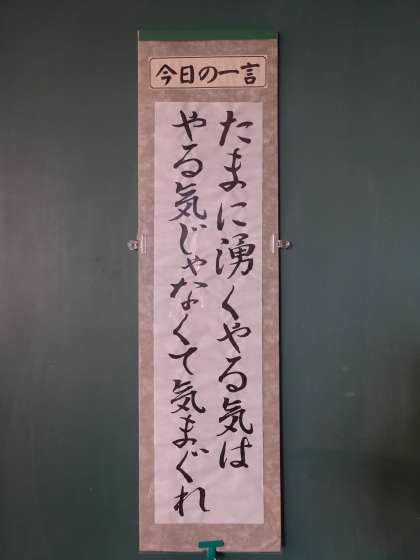 今日の一言
たまに湧くやる気は
やる気じゃなくて気まぐれ